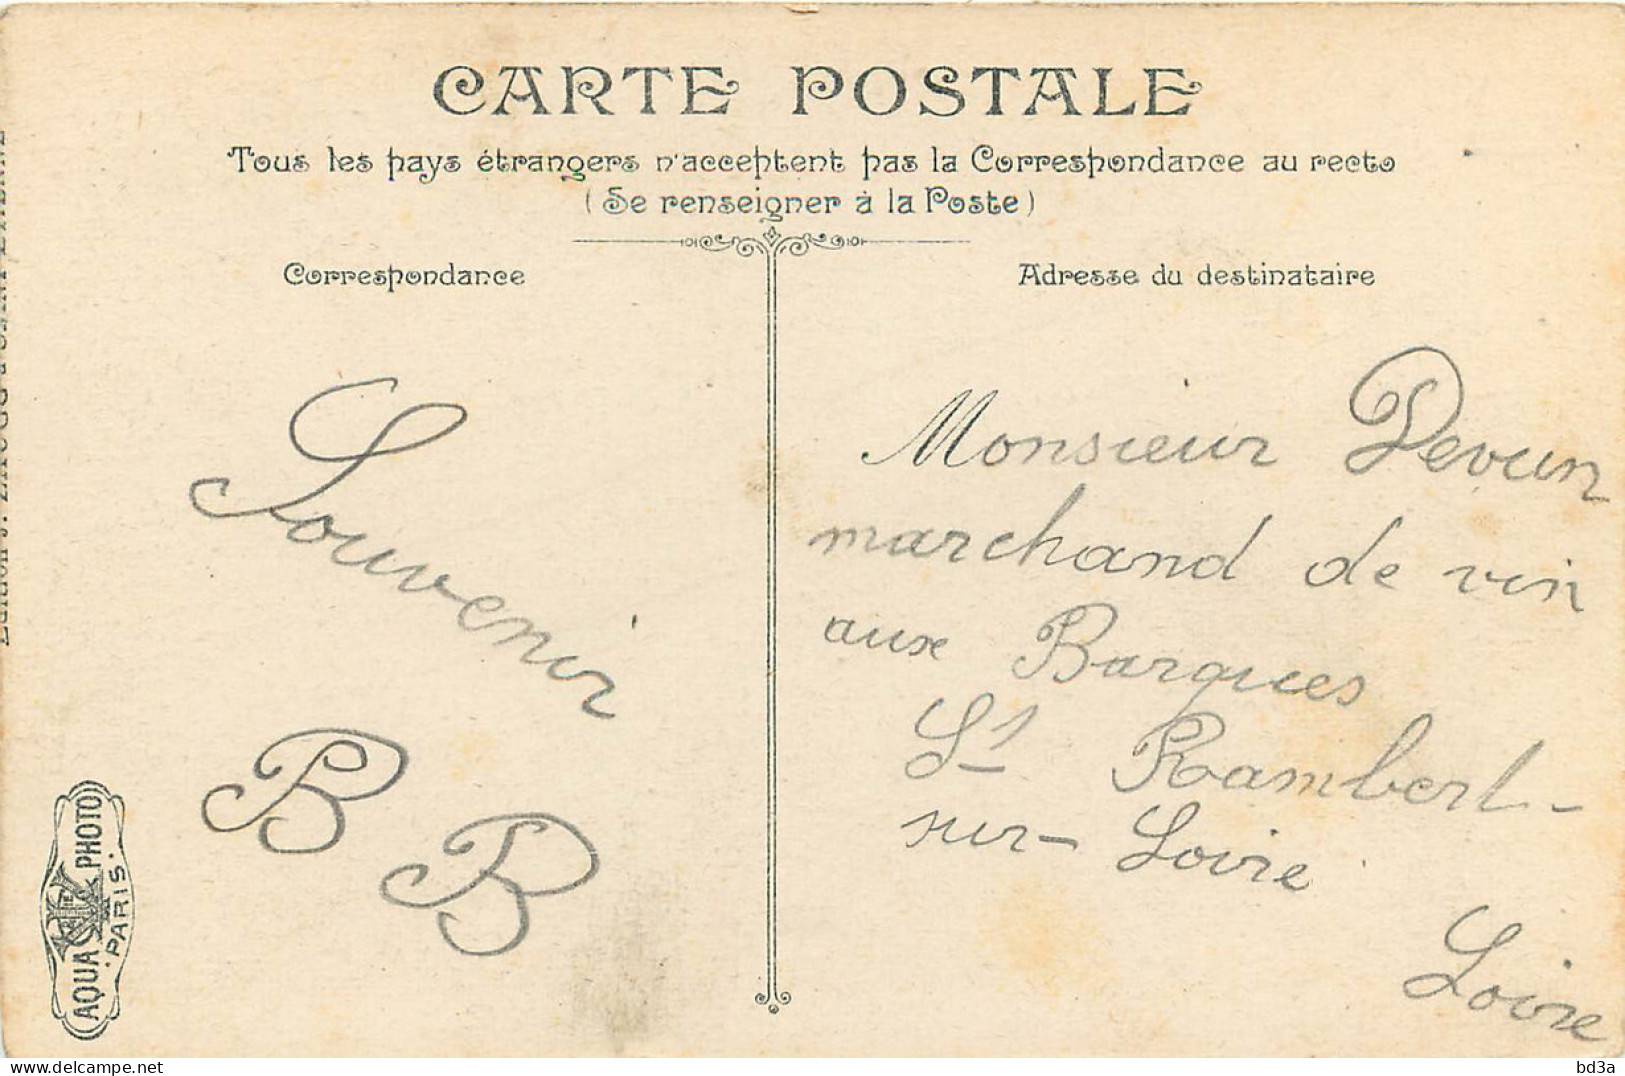 CARTE POSTALE
Tous les pays étrangers n'acceptent pas la Correspondance au recto
(Se renseigner à la Poste)
Correspondance
Adresse du destinataire
Souvenir
B B
Monsieur Devun
marchand de vin
aux Barques
St Rambert-
sur-Loire
Loire
AQUA PHOTO
PARIS
delcampe.net
bd3a